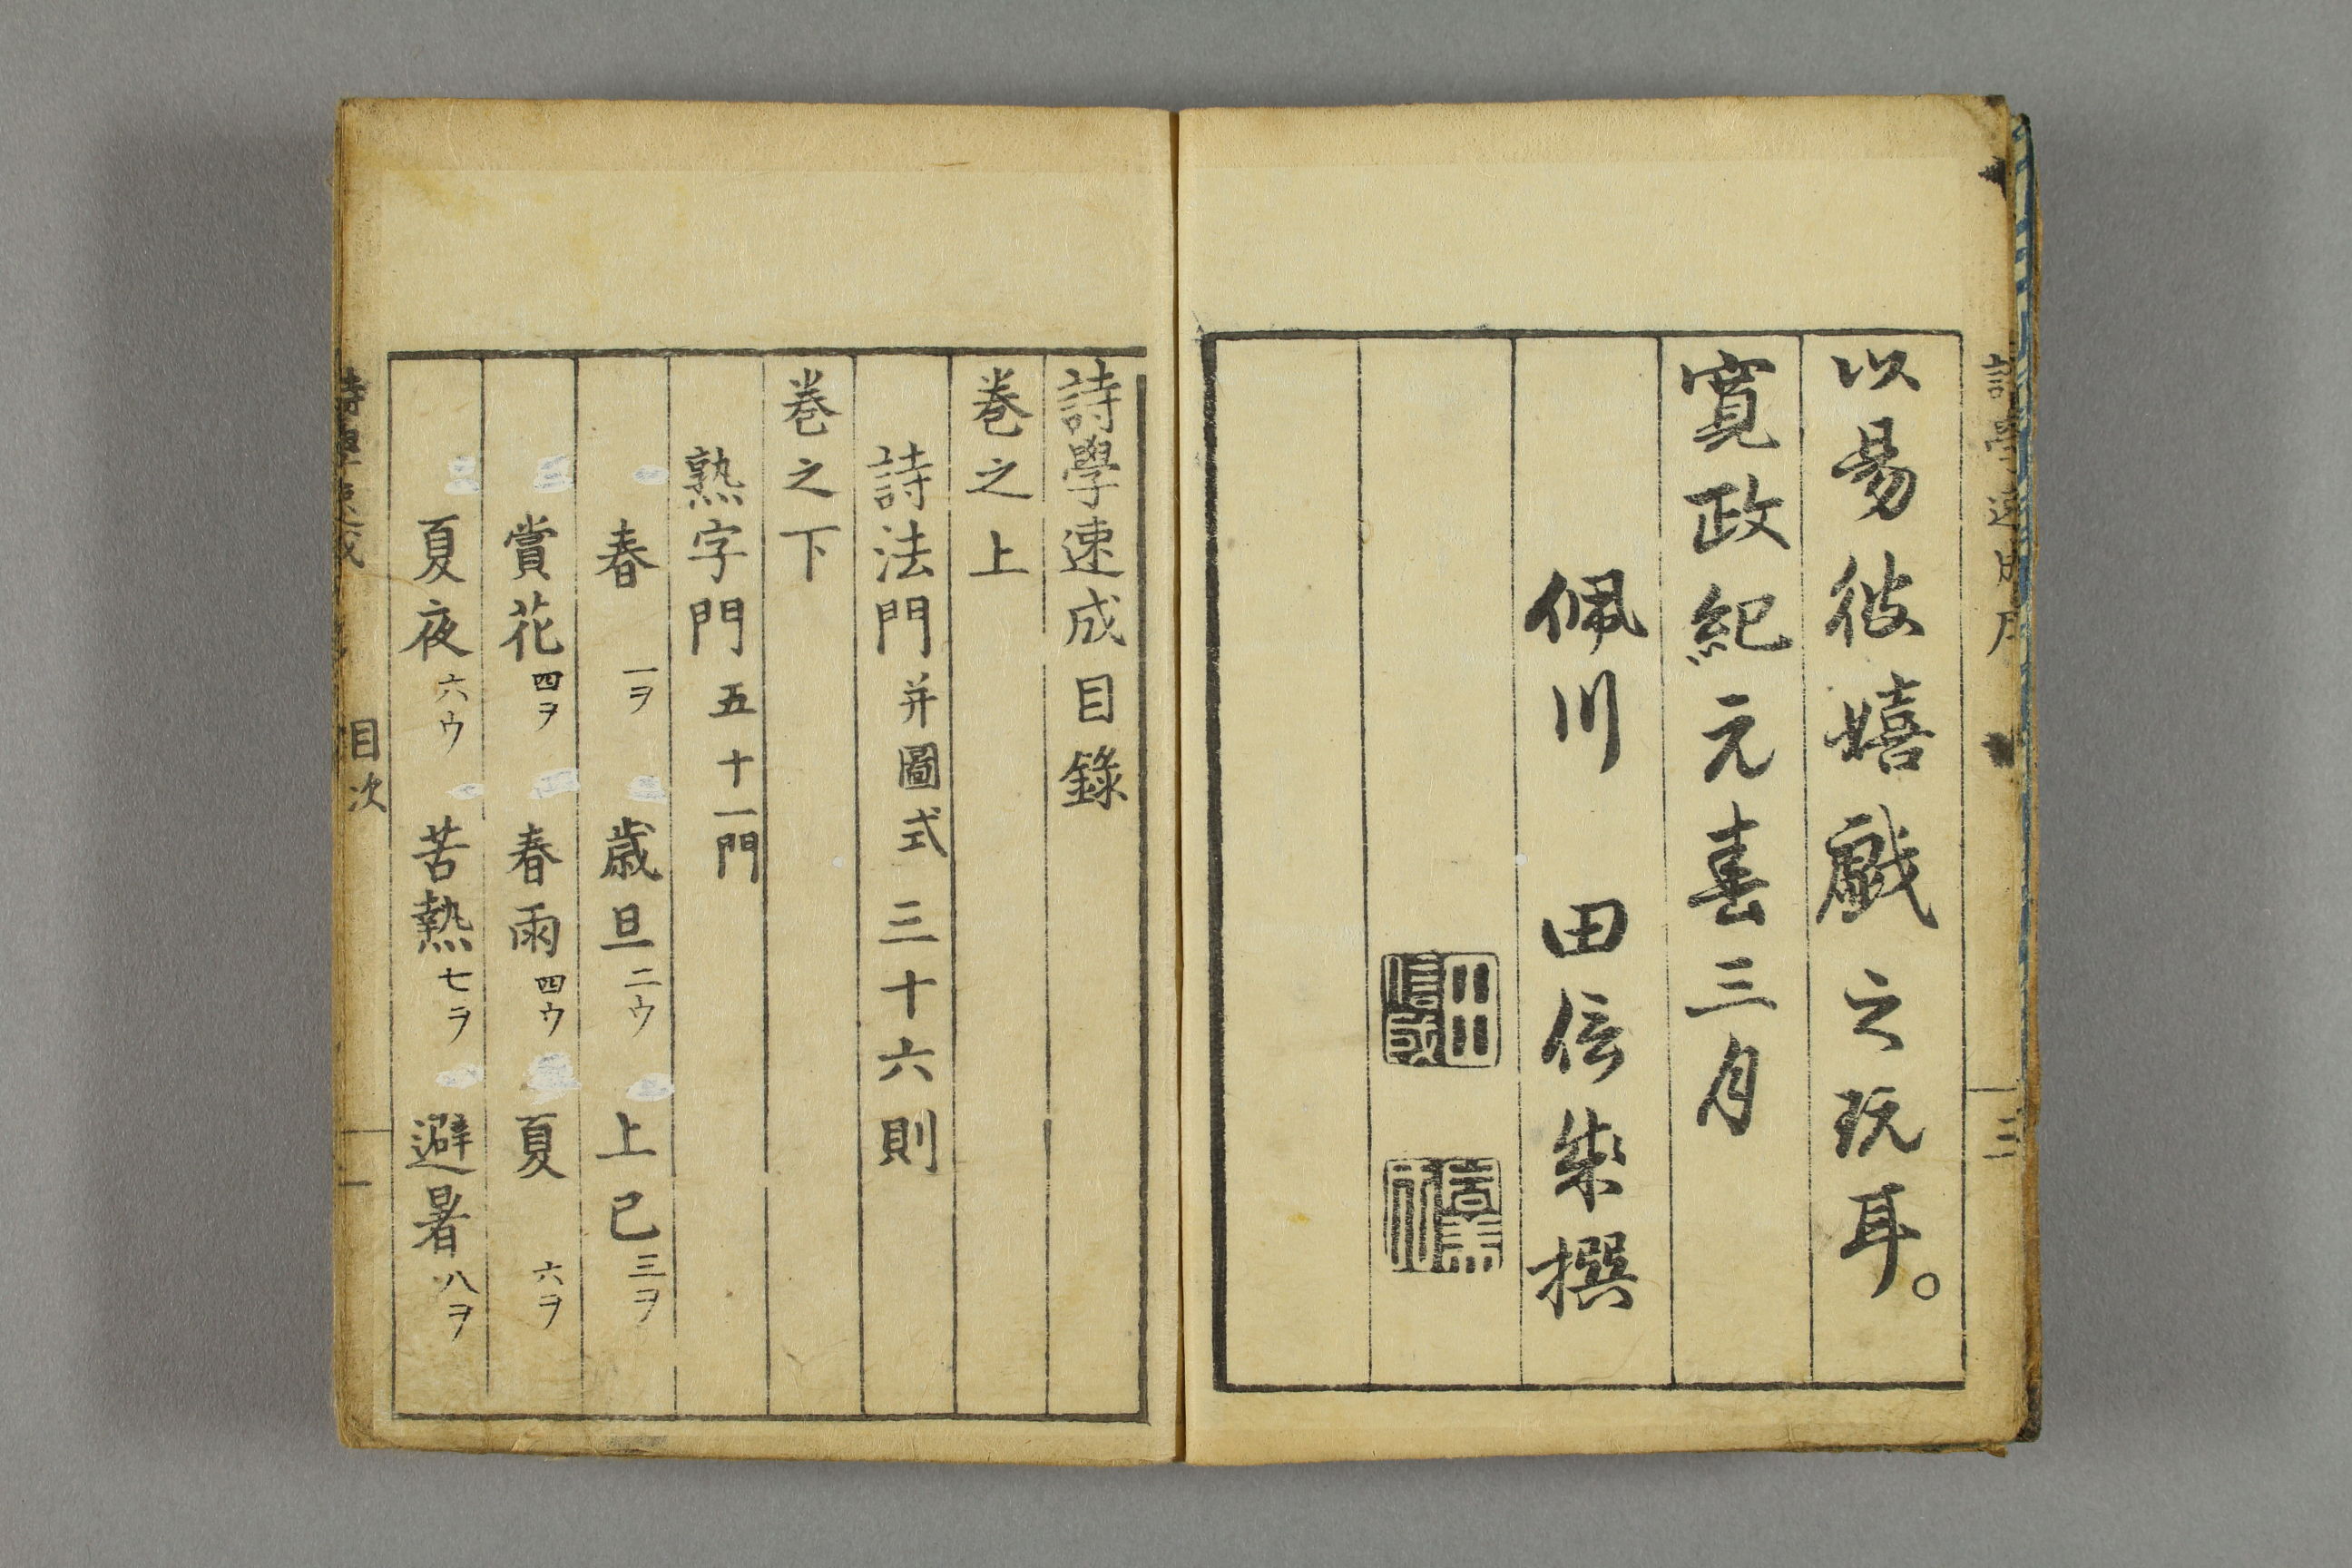 以易彼嬉戯之玩耳。
寛政紀元春三月
佩川 田信成撰
詩學速成目錄
卷之上
詩法門并圖式 三十六則
卷之下
熟字門五十一門
春 一ヲ 歳旦二ウ 上巳三ヲ
賞花四ヲ 春雨四ウ 夏 六ヲ
夏夜六ウ 苦熱七ヲ 避暑八ヲ
目次